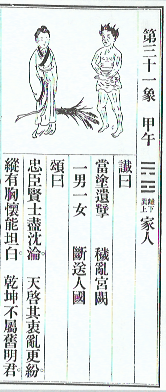 第三十一象 甲午 ䷤ 巽上離下 家人
讖曰
當塗遺孽 穢亂宮闕
一男一女 斷送人國
頌曰
忠臣賢士盡沈淪 天啓其衷亂更紛
縱有胸懷能坦白 乾坤不屬舊明君